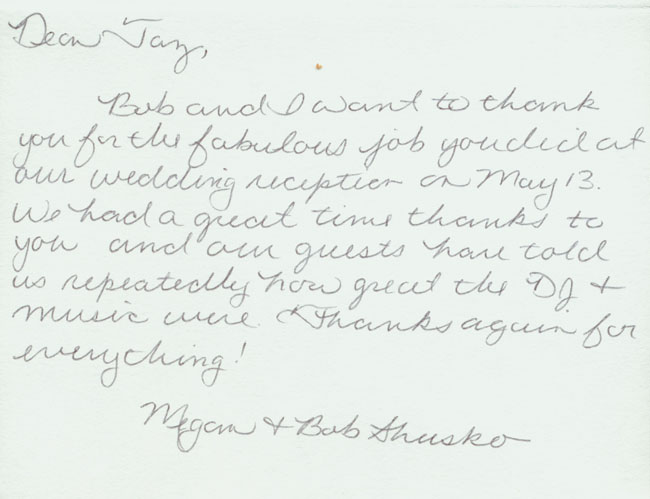 Dear Jay,
Bob and I want to thank
you for the fabulous job you did at
our wedding reception on May 13.
We had a great time thanks to
you and our guests have told
us repeatedly how great the DJ +
music were. Thanks again for
everything!
Megan + Bob Shusko